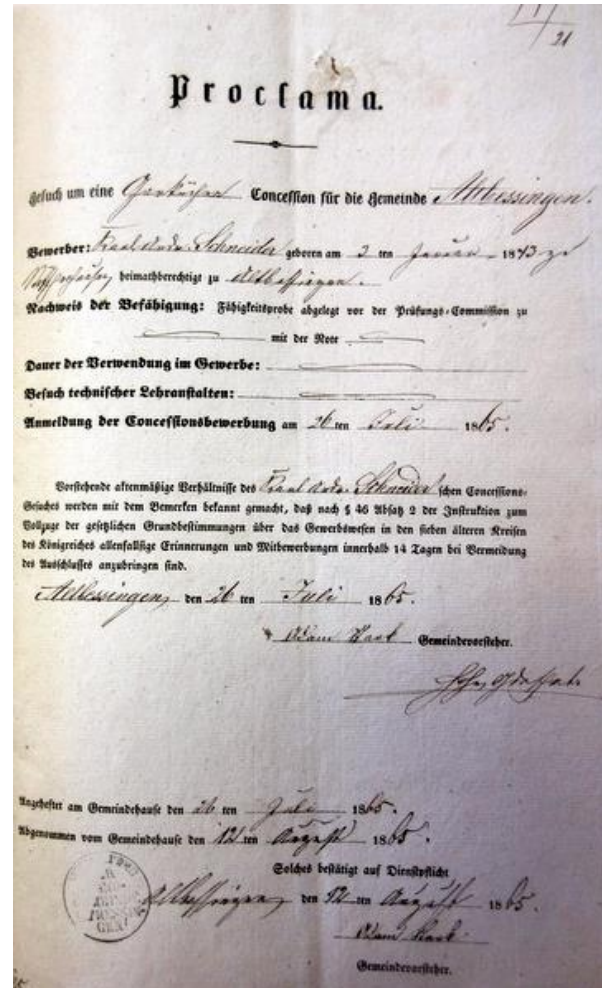 21
Proclama.
Gesuch um eine Garküchen Concession für die Gemeinde Altbessingen.
Bewerber: Schneider geboren am 2 ten Januar 1843 zu
heimathberechtigt zu Altbessingen.
Nachweis der Befähigung: Fähigkeitsprobe abgelegt vor der Prüfungs-Commission zu
mit der Note
Dauer der Verwendung im Gewerbe:
Besuch technischer Lehranstalten:
Anmeldung der Concessionsbewerbung am 26 ten Juli 1865.
Vorstehende aktenmäßige Verhältnisse des Schneider'schen Concessions-
Gesuches werden mit dem Bemerken bekannt gemacht, daß nach § 46 Absatz 2 der Instruktion zum
Vollzuge der gesetzlichen Grundbestimmungen über das Gewerbswesen in den sieben älteren Kreisen
des Königreiches allenfallsige Erinnerungen und Mitbewerbungen innerhalb 14 Tagen bei Vermeidung
des Ausschlusses anzubringen sind.
Altbessingen, den 26 ten Juli 1865.
Adam Gemeindevorsteher.
Angeheftet am Gemeindehause den 26 ten Juli 1865.
Abgenommen vom Gemeindehause den 12 ten August 1865.
Solches bestätigt auf Dienstpflicht
Altbessingen, den 12 ten August 1865.
Adam
Gemeindevorsteher.